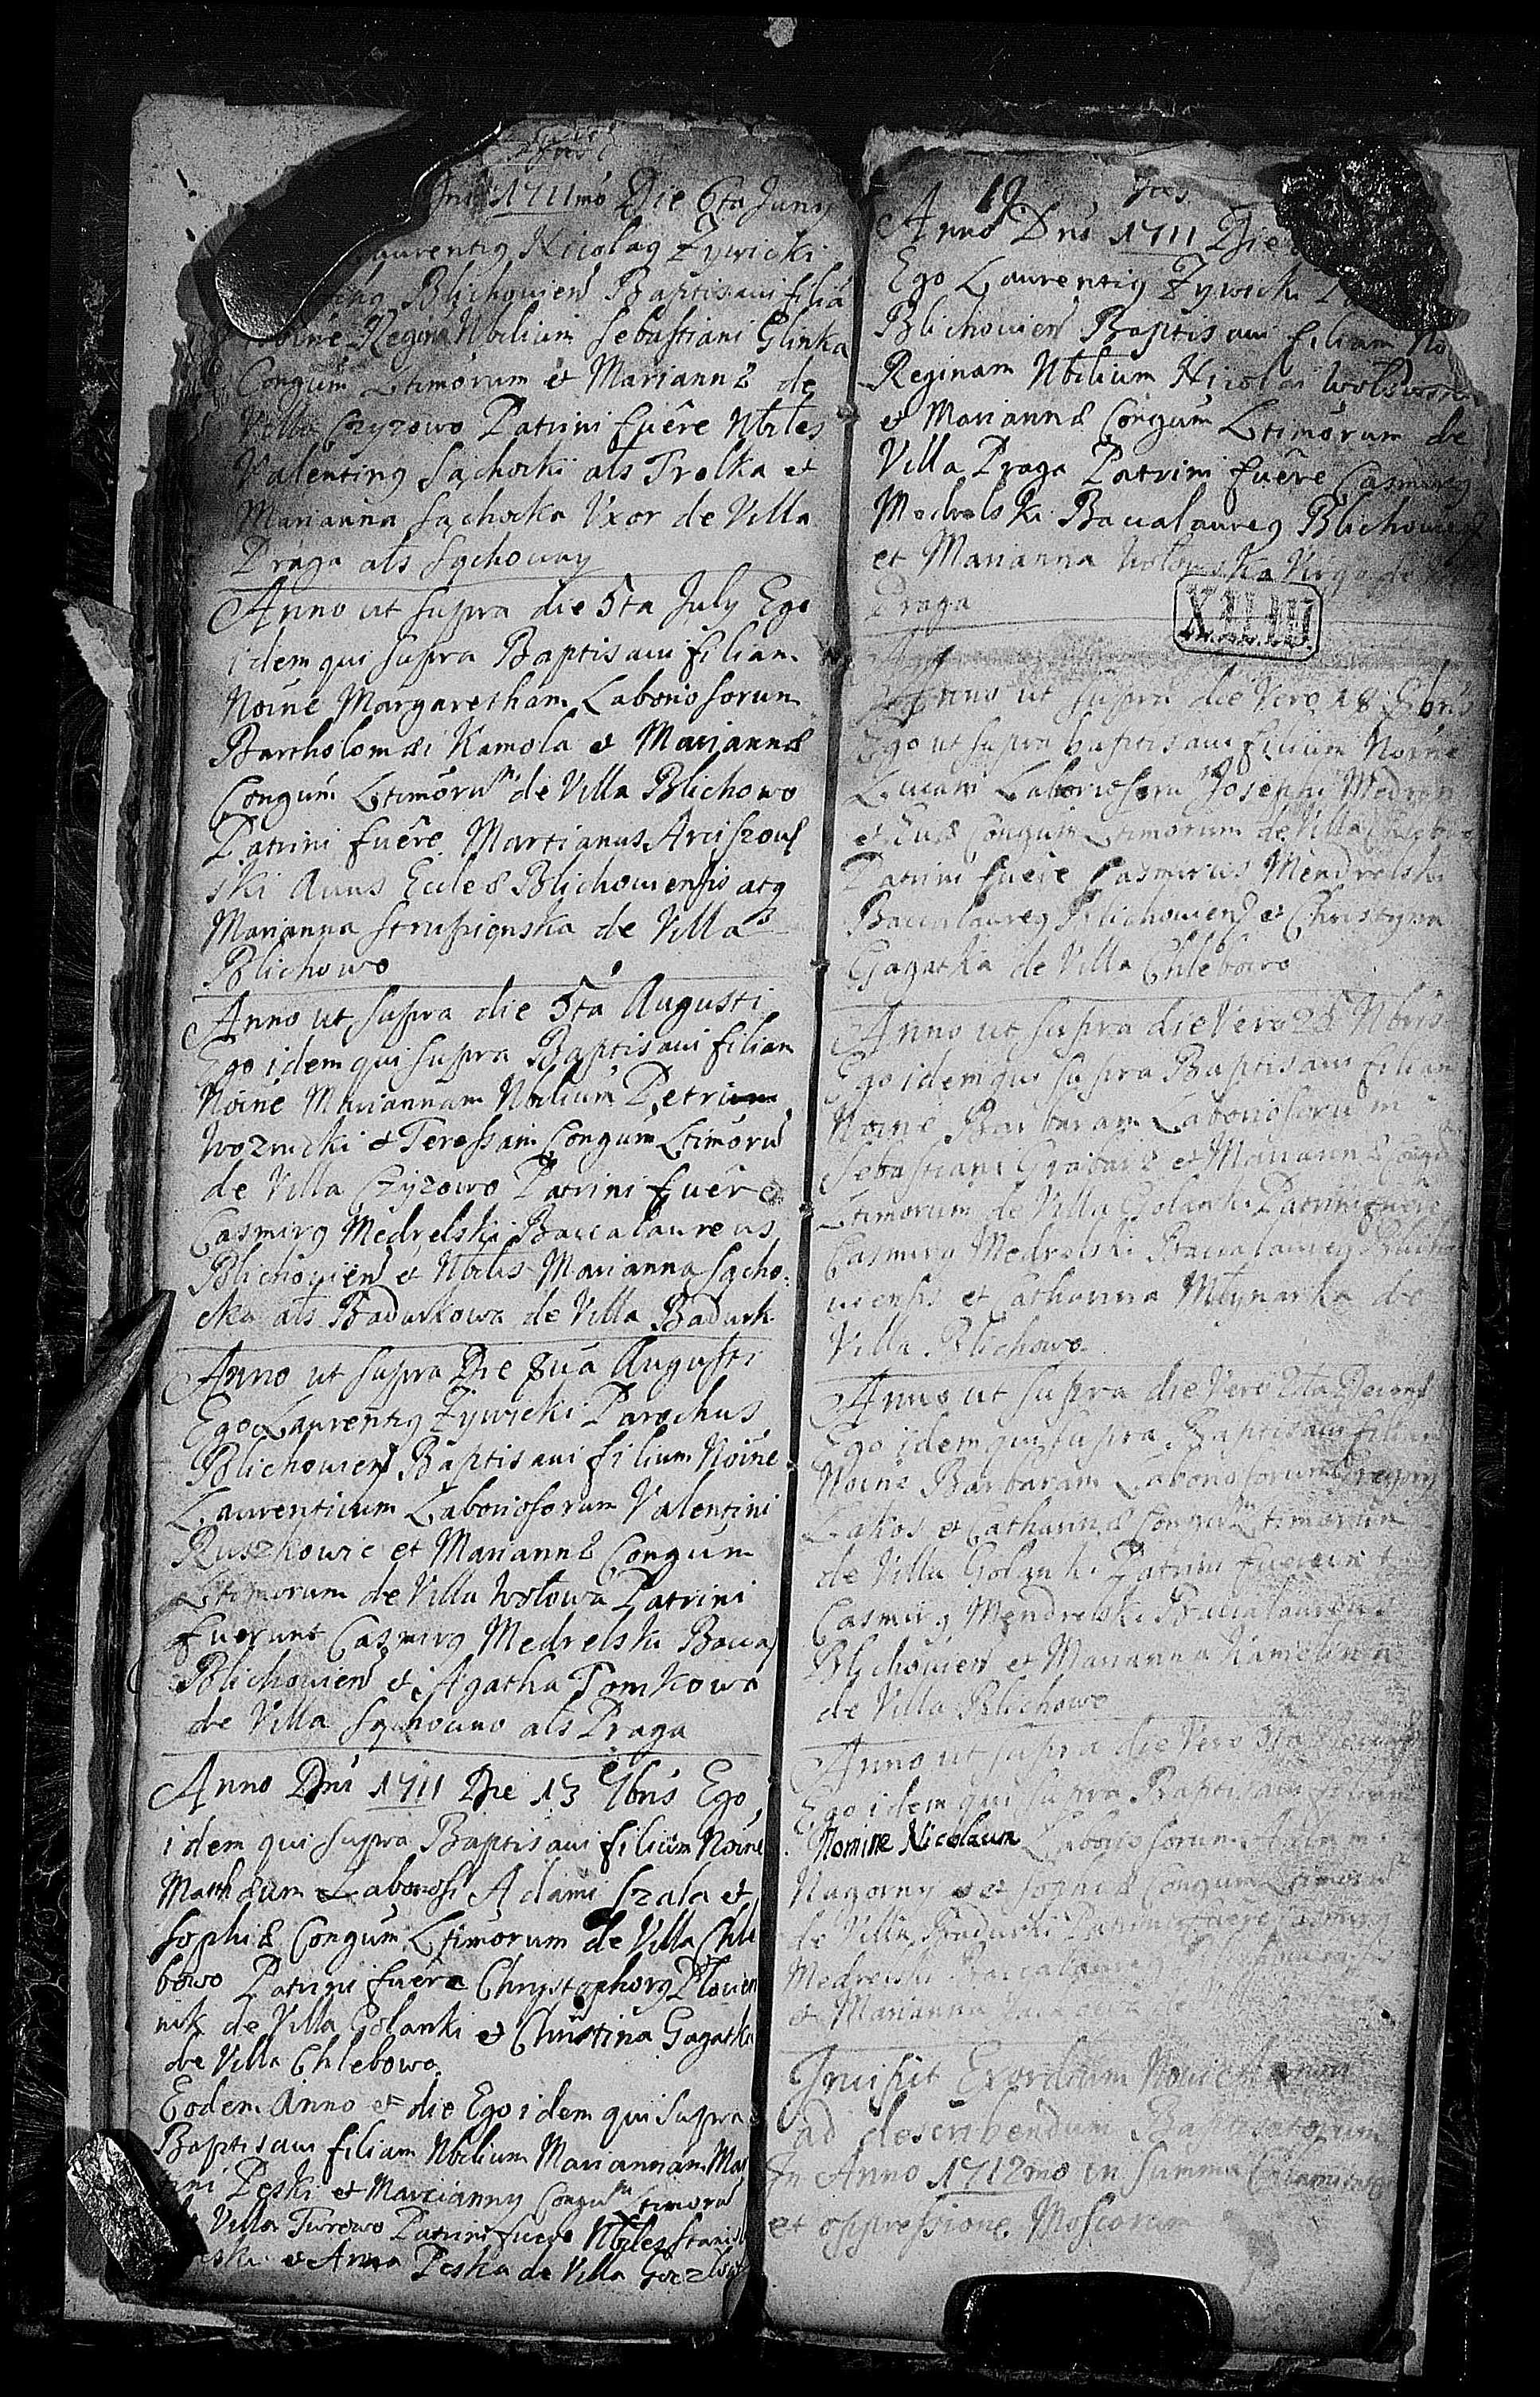 1711mo Die 6ta Juny
Laurentig Nicolag Zywicki
Blichovien Baptisavi filiã
Regina Nbilium Sebastiani Glinka
Congum Ltimorum et Mariannæ de
Villa Czyzowo Patrini fuêre Nbiles
Valenting Sąchocki als Trolka et
Marianna Sąchocka Vxor de Villa
Praga als Sąchowny
Anno ut supra die 5ta July Ego
idem qui supra Baptisavi filiam
Noine Margaretham Laboriosorum
Bartholomæi Kamola et Mariannæ
Congum Ltimoru de Villa Blichowo
Patrini fuêre Martianus Arciszows
ski Avus Eccleæ Blichoviensis atq
Marianna de Villa
Blichowo
Anno ut supra die 5ta Augusti
Ego idem qui supra Baptisavi filiam
Noine Mariannam Nbilium Petri
Woznicki et Teressæ Congum Ltimoru
de Villa Czyzowo Patrini fuêre
Casmirg Mędrelski Baccalaureus
Blichovien et Nbilis Marianna Sącho
cka als Badurkowa de Villa Badurk
Anno ut supra Die 8ua Augusti
Ego Laurentig Zywicki Parochus
Blichovien Baptisavi filium Noine
Laurentium Laboriosorum Valentini
Ruszkowic et Mariannæ Congum
Ltimorum de Villa Wołowa Patrini
fuerunt Casmirg Medrelski Bacca
Blichovien et Agatha Tomkowa
de Villa Sąchowno als Praga
Anno Dni 1711 Die 13 7bris Ego
idem qui supra Baptisavi filium Noine
Matthæum Laboriosi Adami Szala et
Sophiæ Congum Ltimorum de Villa Chle
bowo Patrini fuêre Chrystophorg
nik de Villa Golanki et Christina Gagatka
de Villa Chlebowo
Eodem Anno et die Ego idem qui supra
Baptisavi filiam Nbilium Mariannam Mar
tini Peski et Marcianny Congum Ltimoru
Villa Turowo Patrini fuere Nbiles Stanisl
et Anna Peska de Villa
19
Anno Dni 1711 Die
Ego Laurentig Zywicki
Blichovien Baptisavi filiam No
Reginam Nbilium Nicolai
et Mariannæ Congum Ltimorum de
Villa Praga Patrini fuêre Casmirg
Medrelski Baccalaureg Blichovien
et Marianna Virgo de
Praga
XII.III.
Anno ut supra die Vero 18
Ego ut supra baptisavi filiam Noine
Luciam Laboriosoru Josephi
et Congum Ltimorum de Villa Chlebowo
Patrini fuere Casmirius Mendrelski
Baccalaureg Blichovien et Christyna
Gagatka de Villa Chlebowo
Anno ut supra die Vero 28 Nbris
Ego idem qui supra Baptisavi filiam
Noine Barbaram Laboriosorum
Sebastiani et Mariannæ Congu
Ltimorum de Villa Golanki Patrini fuere
Casmirg Medrelski Baccalaureg Blicho
viensis et Catharina Młynarka de
Villa Blichowo
Anno ut supra die Vero 2da Decemb
Ego idem qui supra Baptisavi filiam
Noine Barbaram Laboriosorum Gregory
et Catharinæ Congum Ltimorum
de Villa Golanki Patrini fuerunt
Casmirg Mendrelski Baccalaureus
Blichovien et Marianna Kamolina
de Villa Blichowo
Anno ut supra die Vero
Ego idem qui supra Baptisavi filium
Nomine Nicolaum Laboriosorum
Nagorny et Sophiæ Congum Ltimoru
de Villa Badurki Patrini fuere Casmirg
Medrelski Baccalaureg
et Marianna
Exordium
ad describendum Baptisatorum
In Anno 1712mo in summa
et oppressione Moscorum